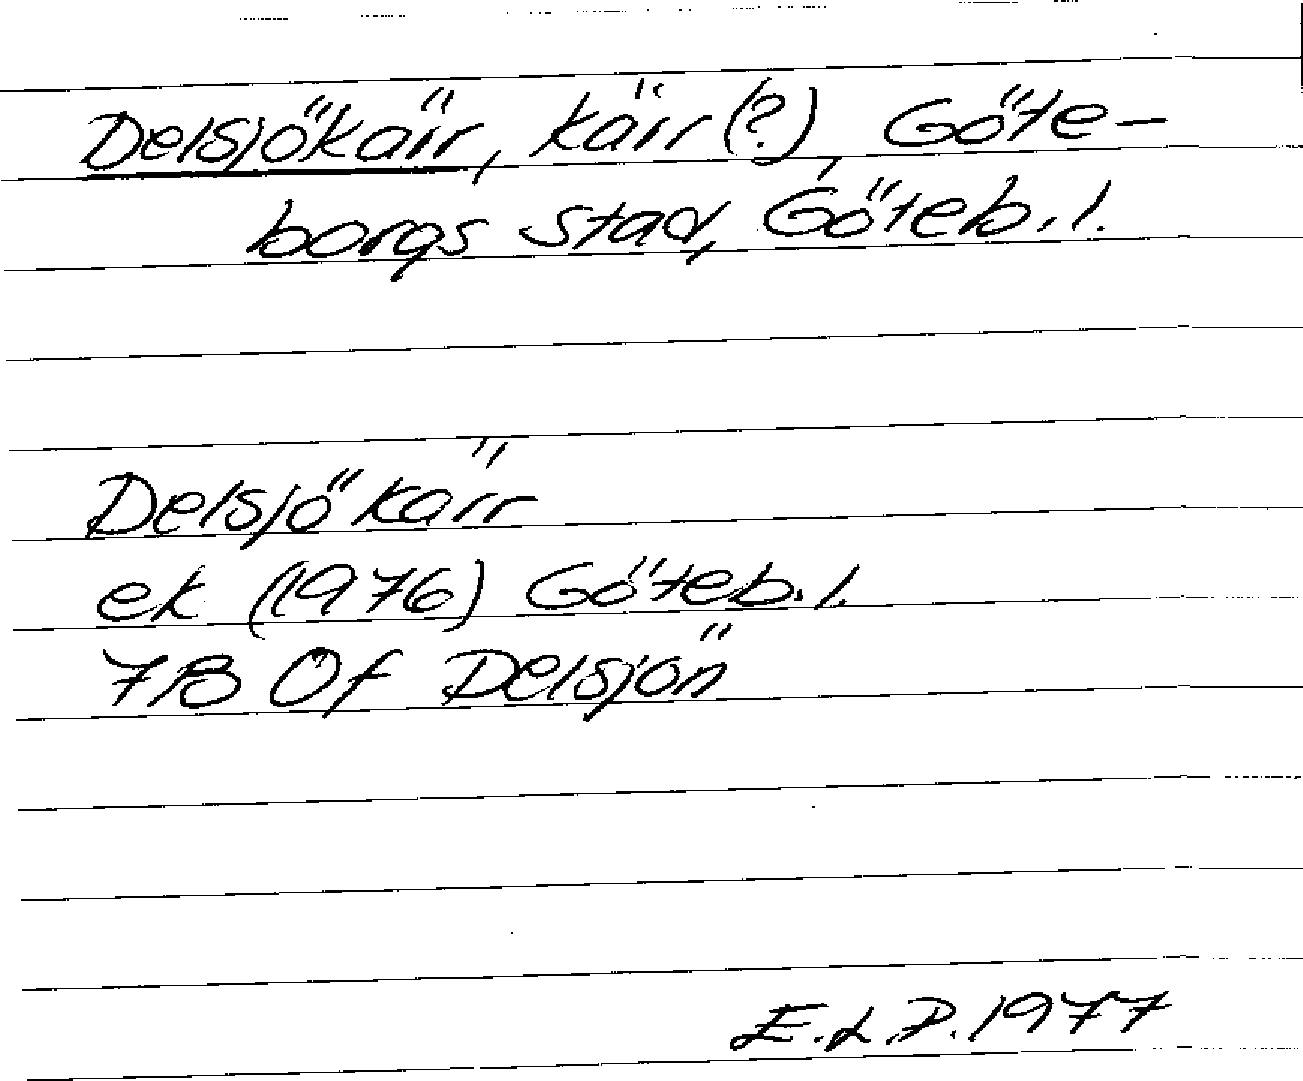 Delsjökärr, kärr (?), Göte-
borgs stad, Göteb. l.
Delsjökärr
ek (1976) Göteb. l.
7B 0f Delsjön
E.L.P. 1977